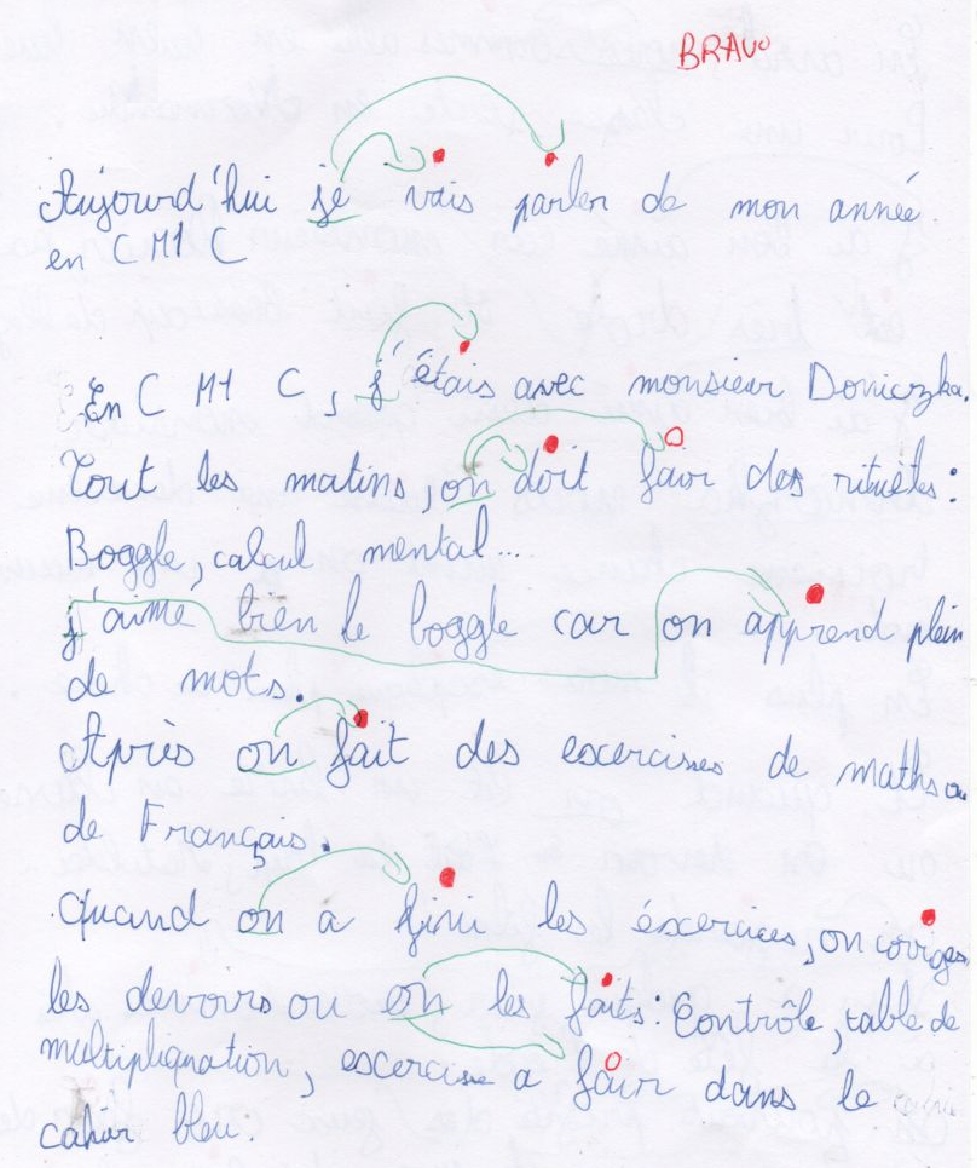 BRAVO
Aujourd'hui je vais parler de mon année
en CM1 C
En CM1 C, j'étais avec monsieur Doniczka.
Tout les matins, on doit fair des rituels :
Boggle, calcul mental...
j'aime bien le boggle car on apprend plein
de mots.
Après on fait des excercises de maths ou
de Français.
Quand on a fini les éxercices, on corriges
les devoirs ou on les faits : Contrôle, table de
multipliquation, excercise a fair dans le
cahier bleu.